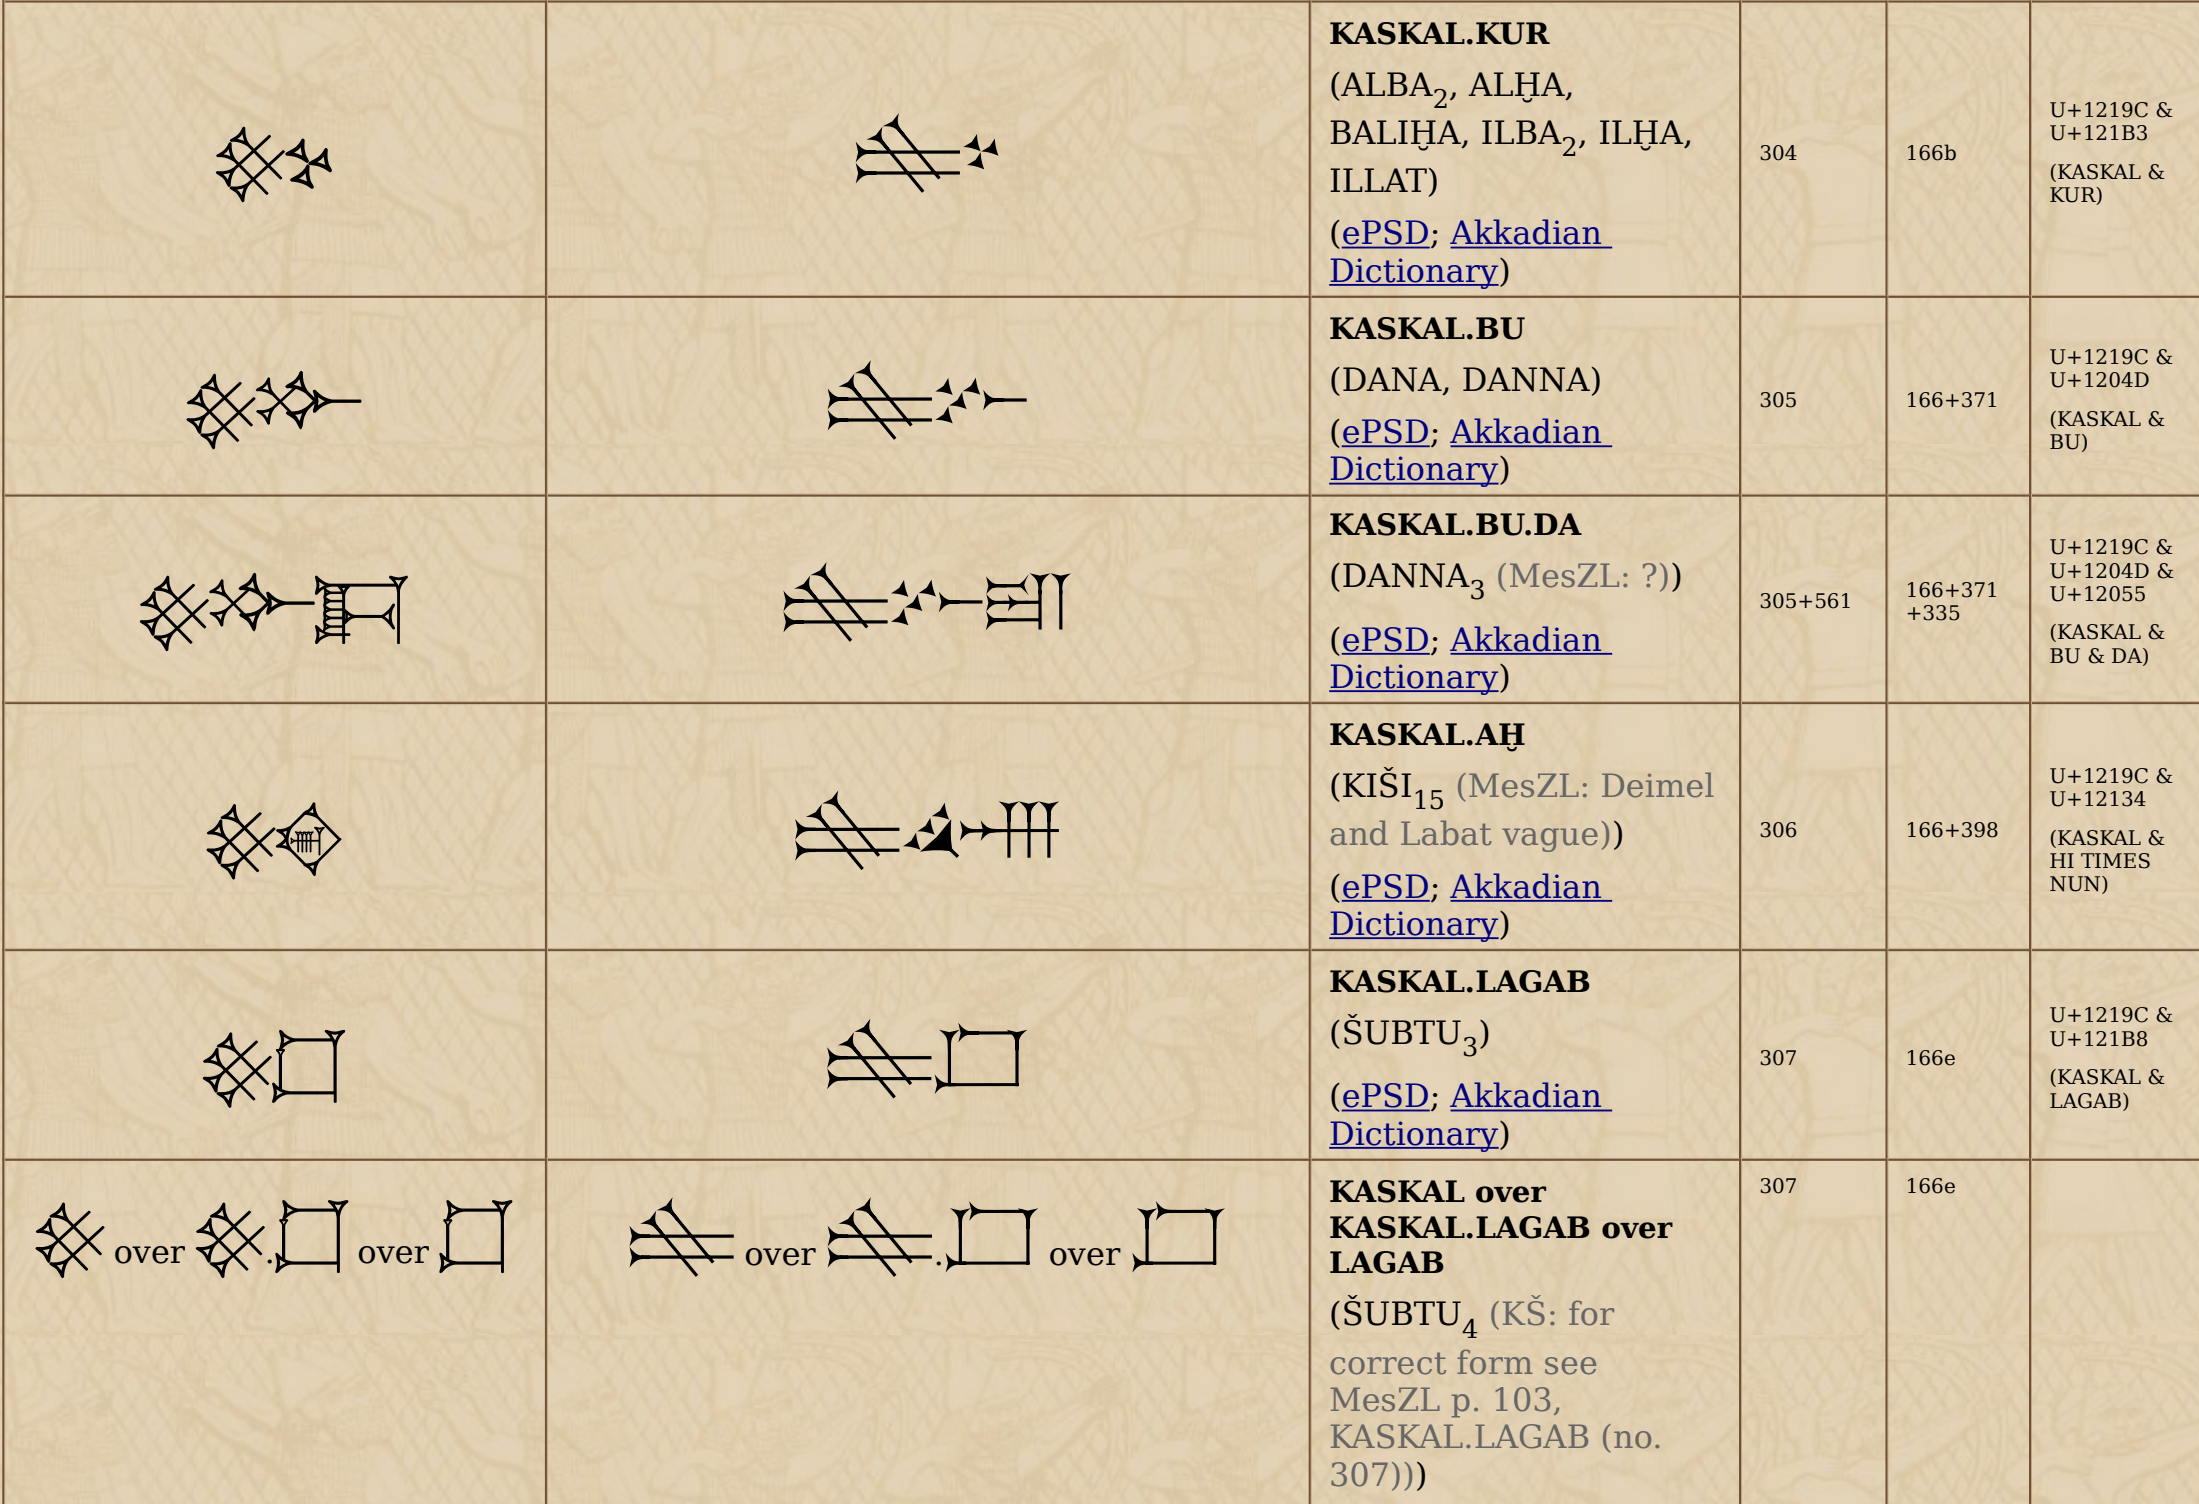 𒆜𒆳 𒆜𒆳 KASKAL.KUR
(ALBA₂, ALḪA,
BALIḪA, ILBA₂, ILḪA,
ILLAT)
(ePSD; Akkadian
Dictionary)
304
166b
U+1219C &
U+121B3
(KASKAL &
KUR)
𒆜𒁍 𒆜𒁍 KASKAL.BU
(DANA, DANNA)
(ePSD; Akkadian
Dictionary)
305
166+371
U+1219C &
U+1204D
(KASKAL &
BU)
𒆜𒁍𒁕 𒆜𒁍𒁕 KASKAL.BU.DA
(DANNA₃ (MesZL: ?))
(ePSD; Akkadian
Dictionary)
305+561
166+371
+335
U+1219C &
U+1204D &
U+12055
(KASKAL &
BU & DA)
𒆜𒄴 𒆜𒄴 KASKAL.AḪ
(KIŠI₁₅ (MesZL: Deimel
and Labat vague))
(ePSD; Akkadian
Dictionary)
306
166+398
U+1219C &
U+12134
(KASKAL &
HI TIMES
NUN)
𒆜𒆸 𒆜𒆸 KASKAL.LAGAB
(ŠUBTU₃)
(ePSD; Akkadian
Dictionary)
307
166e
U+1219C &
U+121B8
(KASKAL &
LAGAB)
𒆜 over 𒆜.𒆸 over 𒆸
𒆜 over 𒆜.𒆸 over 𒆸
KASKAL over
KASKAL.LAGAB over
LAGAB
(ŠUBTU₄ (KŠ: for
correct form see
MesZL p. 103,
KASKAL.LAGAB (no.
307)))
307
166e